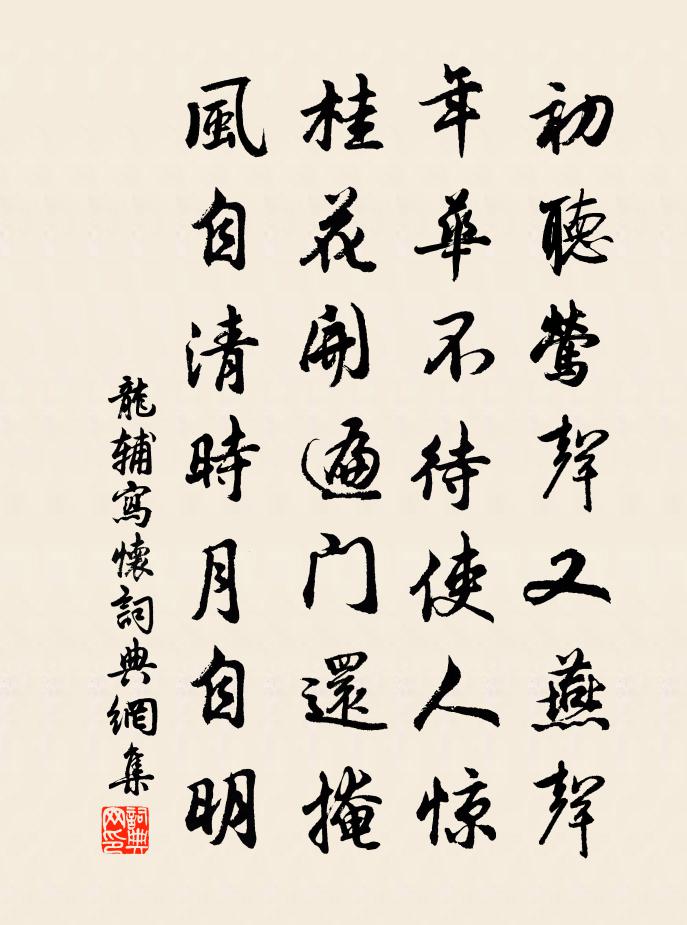 初聽鶯聲又燕聲
年華不待使人惊
桂花開遍門還掩
風自清時月自明
龍辅寫懷詞典網集
詞典网印